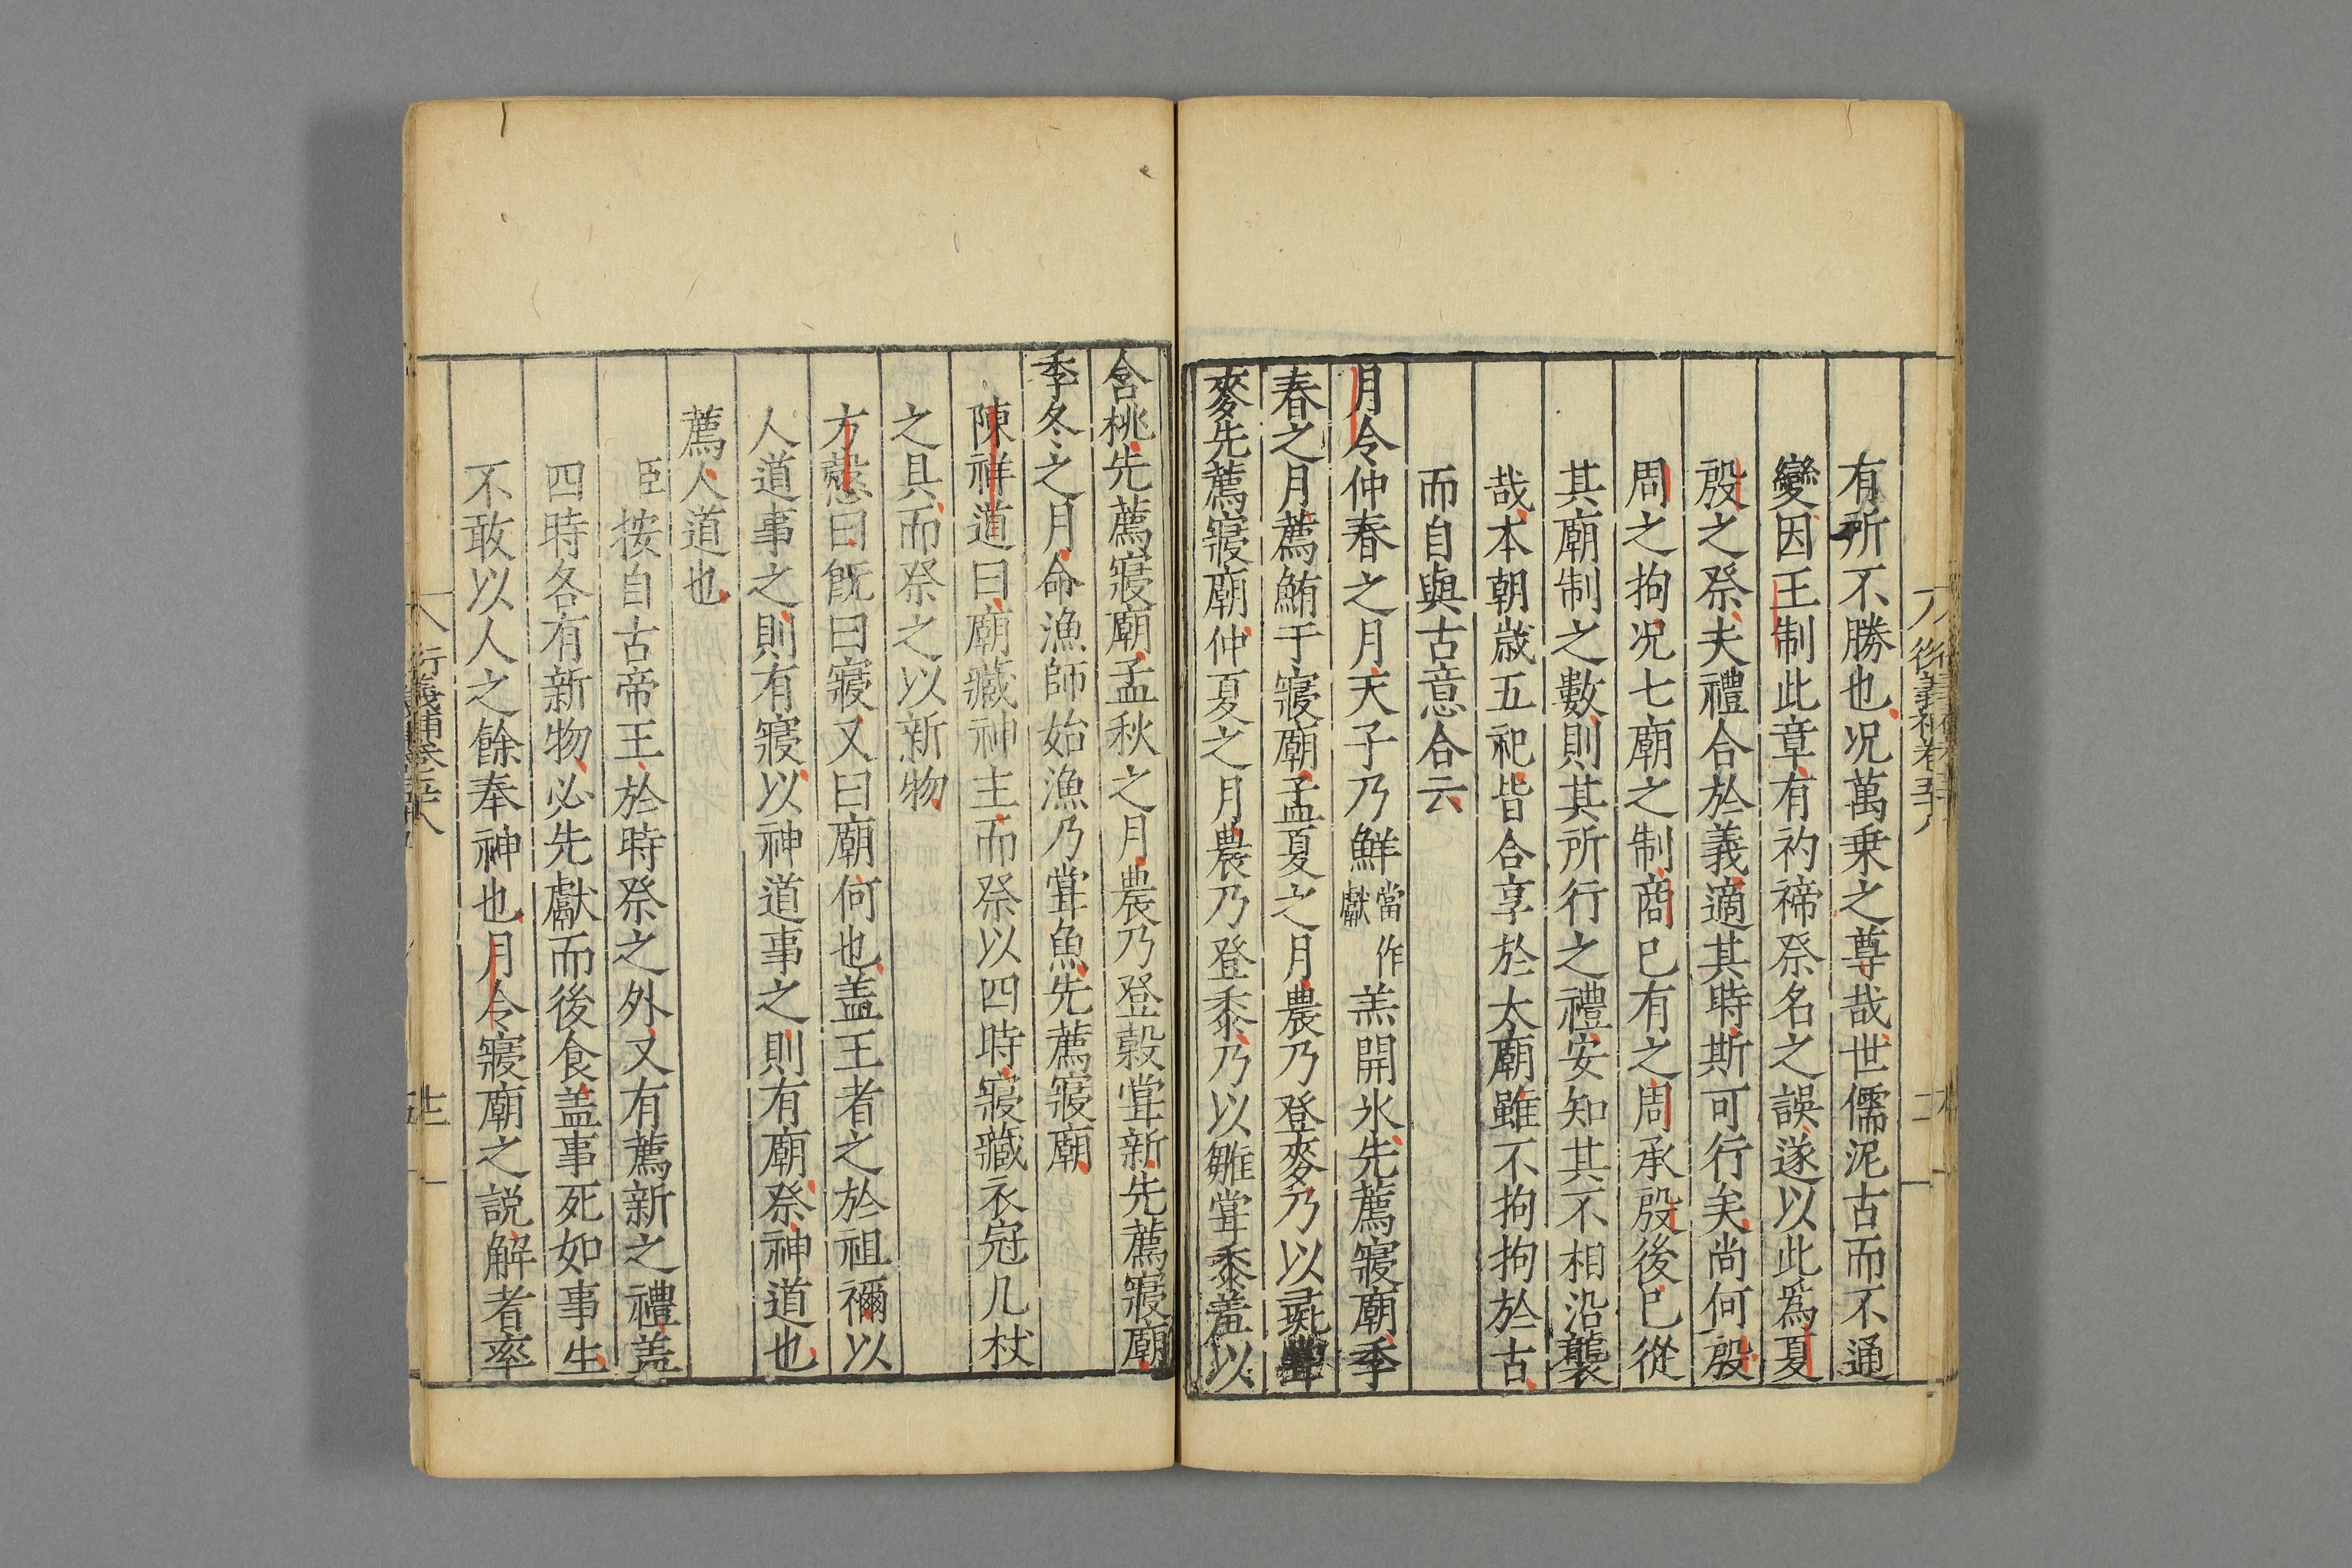 有所不勝也况萬乗之尊哉世儒泥古而不通
變因王制此章有礿禘祭名之誤遂以此爲夏
殷之祭夫禮合於義適其時斯可行矣尚何殷
周之拘况七廟之制商已有之周承殷後已從
其廟制之數則其所行之禮安知其不相沿襲
哉本朝歲五祀皆合享於太廟雖不拘拘於古
而自與古意合云
月令仲春之月天子乃鮮當作獻羔開氷先薦寢廟季
春之月薦鮪于寢廟孟夏之月農乃登麥乃以彘甞
麥先薦寢廟仲夏之月農乃登黍乃以雛甞黍羞以
含桃先薦寢廟孟秋之月農乃登穀甞新先薦寢廟
季冬之月命漁師始漁乃甞魚先薦寢廟
陳祥道曰廟藏神主而祭以四時寢藏衣冠几杖
之具而祭之以新物
方慤曰旣曰寢又曰廟何也盖王者之於祖禰以
人道事之則有寢以神道事之則有廟祭神道也
薦人道也
臣按自古帝王於時祭之外又有薦新之禮盖
四時各有新物必先獻而後食盖事死如事生
不敢以人之餘奉神也月令寢廟之説解者率